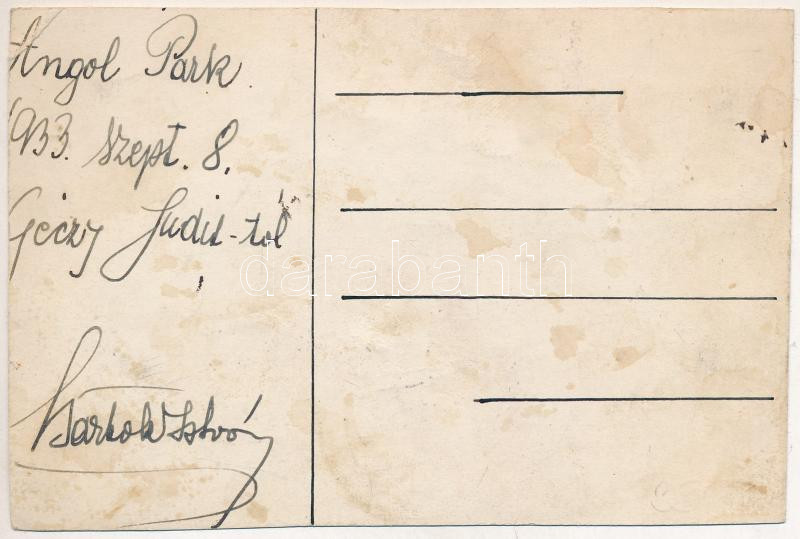 Angol Park.
1933. szept. 8.
Géczy Judit-tól
István
darabanth